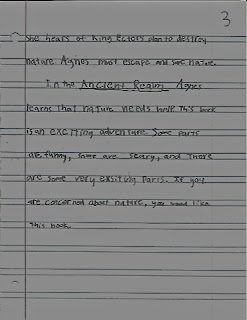 3
She hears of King Ectors plan to destroy
nature. Agnes must escape and save nature.
In the Ancient Realm Agnes
learns that nature needs help. This book
is an exciting adventure. Some parts
are funny, some are scary, and there
are some very exsiting parts. If you
are concerned about nature, you would like
this book.